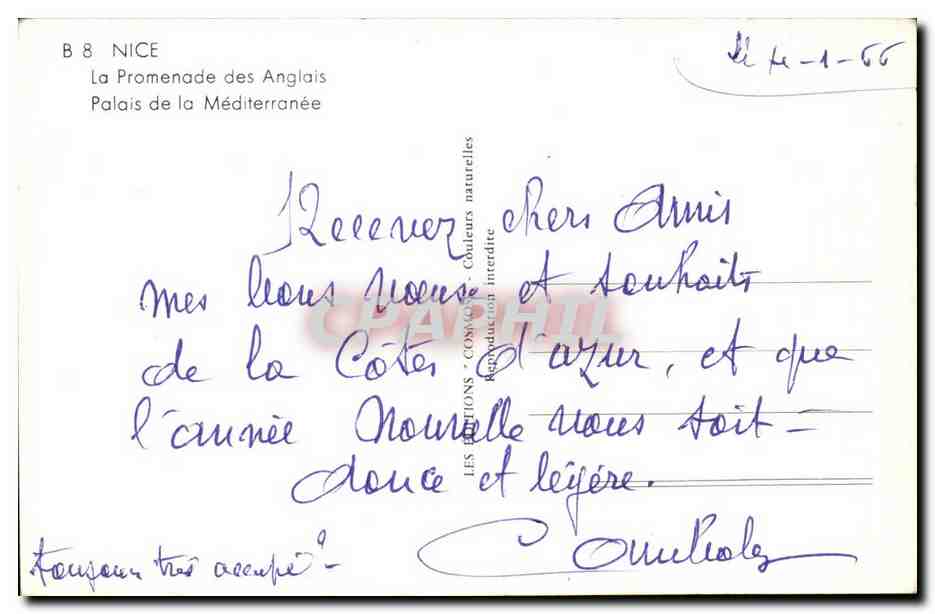 B 8 NICE
La Promenade des Anglais
Palais de la Méditerranée
le 4-1-66
Recevez chers Amis
mes bons vœux et souhaits
de la Côte d'azur, et que
l'année Nouvelle vous soit -
douce et légére.
toujours très occupé? -
LES EDITIONS "COSMOS" - Couleurs naturelles
Reproduction interdite
CPAPHIL